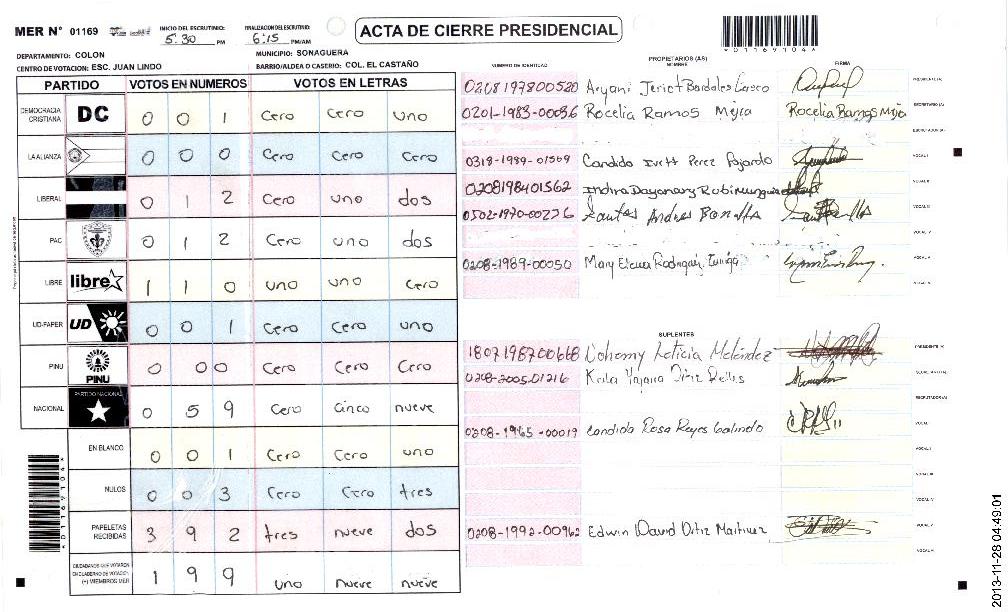 MER N° 01169 INICIO DEL ESCRUTINIO: 5:30 PM FINALIZACION DEL ESCRUTINIO: 6:15 PM/AM ACTA DE CIERRE PRESIDENCIAL
*01169104*
DEPARTAMENTO: COLON MUNICIPIO: SONAGUERA
CENTRO DE VOTACION: ESC. JUAN LINDO BARRIO/ALDEA O CASERIO: COL. EL CASTAÑO
PARTIDO VOTOS EN NUMEROS VOTOS EN LETRAS
DEMOCRACIA CRISTIANA DC 0 0 1 Cero Cero uno
LA ALIANZA 0 0 0 Cero Cero Cero
LIBERAL 0 1 2 Cero uno dos
PAC 0 1 2 Cero uno dos
LIBRE libre 1 1 0 uno uno cero
UD-FAPER UD 0 0 1 Cero Cero uno
PINU PINU 0 0 0 Cero Cero Cero
NACIONAL PARTIDO NACIONAL 0 5 9 Cero Cinco nueve
EN BLANCO 0 0 1 Cero Cero uno
NULOS 0 0 3 Cero Cero tres
PAPELETAS RECIBIDAS 3 9 2 tres nueve dos
CIUDADANOS QUE VOTARON EN CUADERNO DE VOTACION (+) MIEMBROS MER 1 9 9 uno nueve nueve
*01169104*
PROPIETARIOS (AS)
NUMERO DE IDENTIDAD NOMBRE FIRMA
0208197800520 Jeriot Bardales PRESIDENTE (A)
0201-1983-00086 Rocelia Ramos Mejia Rocelia Ramos Mejia SECRETARIO (A)
ESCRUTADOR (A)
0318-1989-01569 Candido Perez Fajardo VOCAL I
0208198401562 Indira Dayanary VOCAL II
0502-1970-00226 Santos Andres Bonilla VOCAL III
VOCAL IV
0208-1989-00050 Mary VOCAL V
SUPLENTES
1807198700668 Dohomy Leticia Meléndez PRESIDENTE (A)
0208-2005-01216 Keila SECRETARIO (A)
ESCRUTADOR (A)
0208-1965-00019 Candida Rosa Reyes Galindo VOCAL I
VOCAL II
VOCAL III
VOCAL IV
0208-1992-00962 Edwin David Ortiz Martinez VOCAL V
2013-11-28 04:49:01